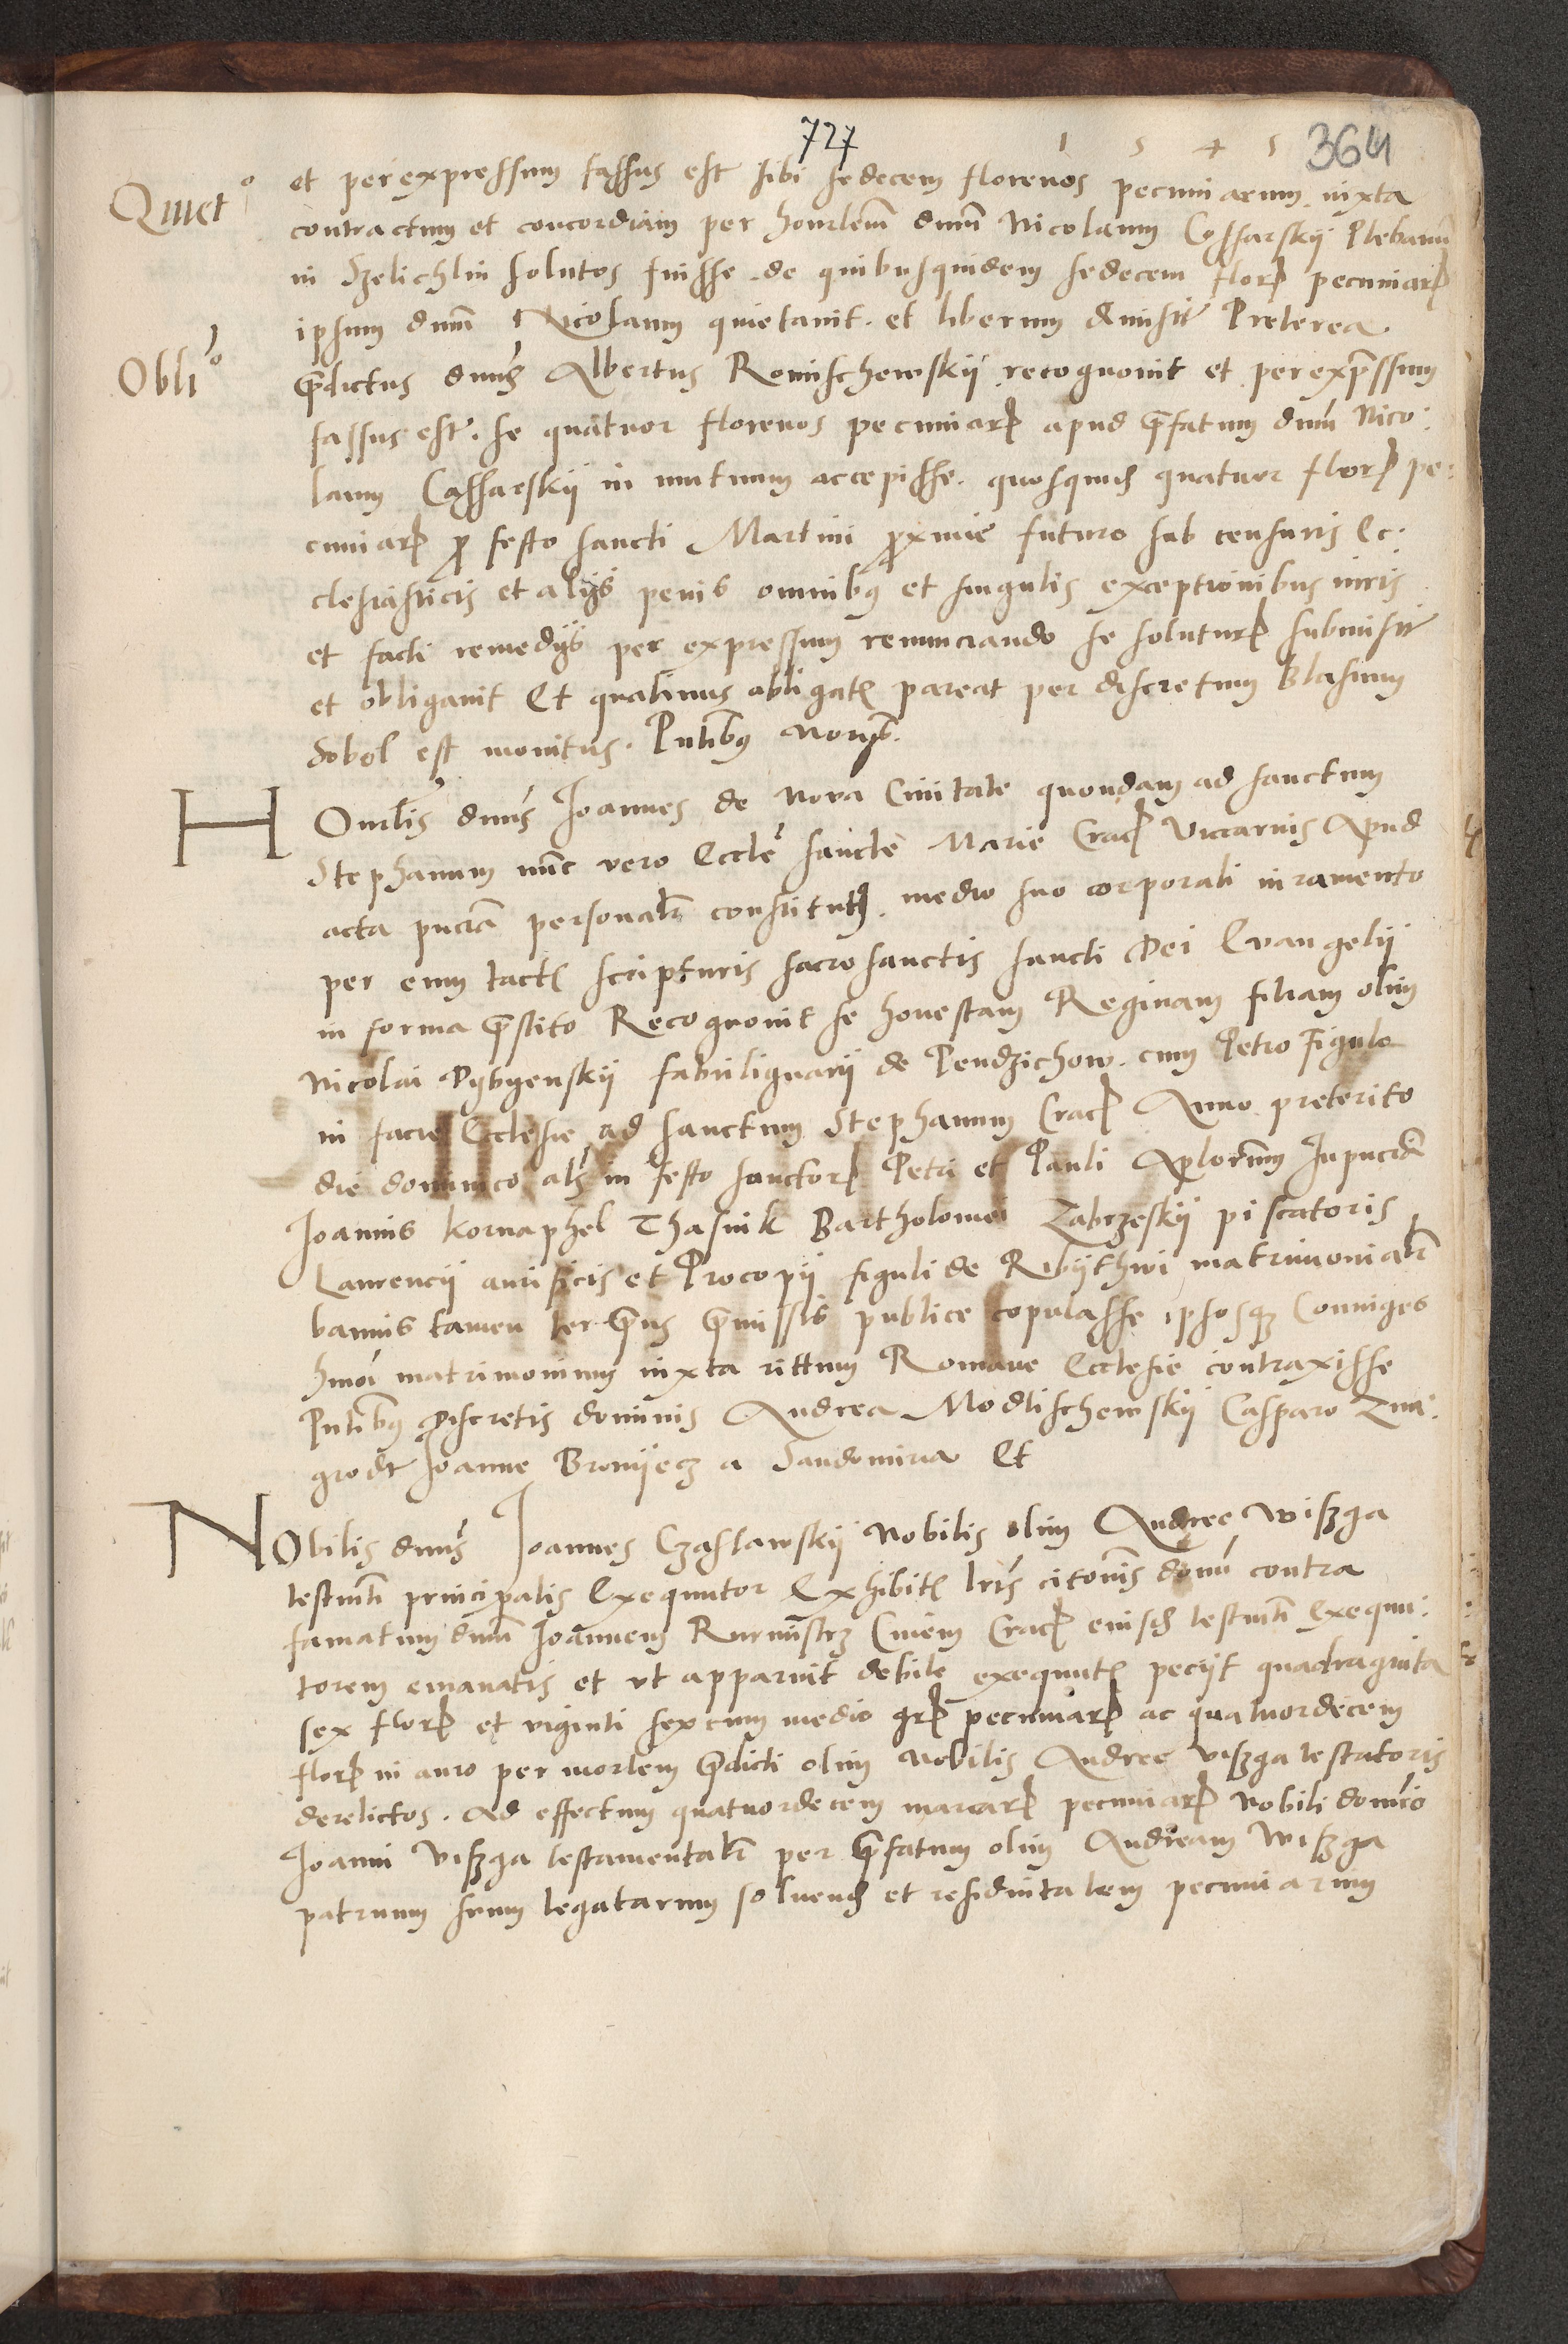 727
1 5 4 5
364
Quiet^o
et per expressum fassus est sibi sedecem florenos pecuniarum iuxta
contractum et concordiam per honrlem dnum Nicolaum Cossarskij Plebanum
in Szelichlin solutos fuisse de quibusquidem sedecem flor pecuniar
ipsum dnum Nicolaum quietauit et liberum dimisit Preterea
Obli^o
pdictus dnus Albertus Remischewskij recognouit et per expressum
fassus est se quatuor florenos pecuniar apud pfatum dnum Nico:
laum Cassarskij in mutuum accepisse quosquid quatuor flor pe:
cuniar p festo sancti Martini pxime futuro sub censuris Ec:
clesiasticis et alijs penis omnibus et singulis exceptionibus iuris
et facti remedijs per expressum renunciando se solutur submisit
et obligauit Et quatinus obligat pareat per discretum Blasium
Sobol est monitus. Pntibus Nor
HOnrlis dnus Joannes de Noua Ciuitate quondam ad sanctum
Stephanum nunc vero Eccle sancte Marie Crac Viccarius Apud
acta pncia personalr constitutus medio suo corporali iuramento
per eum tact scripturis sacrosanctis sancti Dei Euangelij
in forma pstito Recognouit se honestam Reginam filiam olim
Nicolai Dybyenskij fabrilignarij de Pendzichow cum Petro Figulo
in facie Ecclesie ad sanctum Stephanum Crac Anno preterito
die dominico als in festo sanctor Petri et Pauli Aplorum In pncia
Joannis Kornaphel Thasnik Bartholomei Zabrzeskij piscatoris
Laurencij aurificis et Procopij figuli de Ribijthwi matrimonialr
bannis tamen ter pus pmissis publice copulasse ipsosque Coniuges
hmoi matrimonium iuxta rittum Romane Ecclesie contraxisse
Pntibus Discretis dominis Andrea Modlischewskij Casparo Zna:
grodt Joanne Bronijecz a Sandomiria Et
NObilis dnus Joannes Czaslawskij Nobilis olim Andree Wiszga
testmti principalis Exequutor Exhibit lris citonis domi contra
famatum dnum Joannem Rurmustrz Ciuem Crac eiusd testmti Exequu:
torem emanatis et vt apparuit debite exequut pecijt quadraginta
sex flor et viginti sex cum medio gr pecuniar ac quatuordecem
flor in auro per mortem pdicti olim Nobilis Andree Viszga testatoris
derelictos. Ad effectum quatuordecem marcar pecuniar Nobili domino
Joanni Viszga testamentalr per pfatum olim Andream Wiszga
patruum suum legatarum soluend et residuitatem pecuniarum